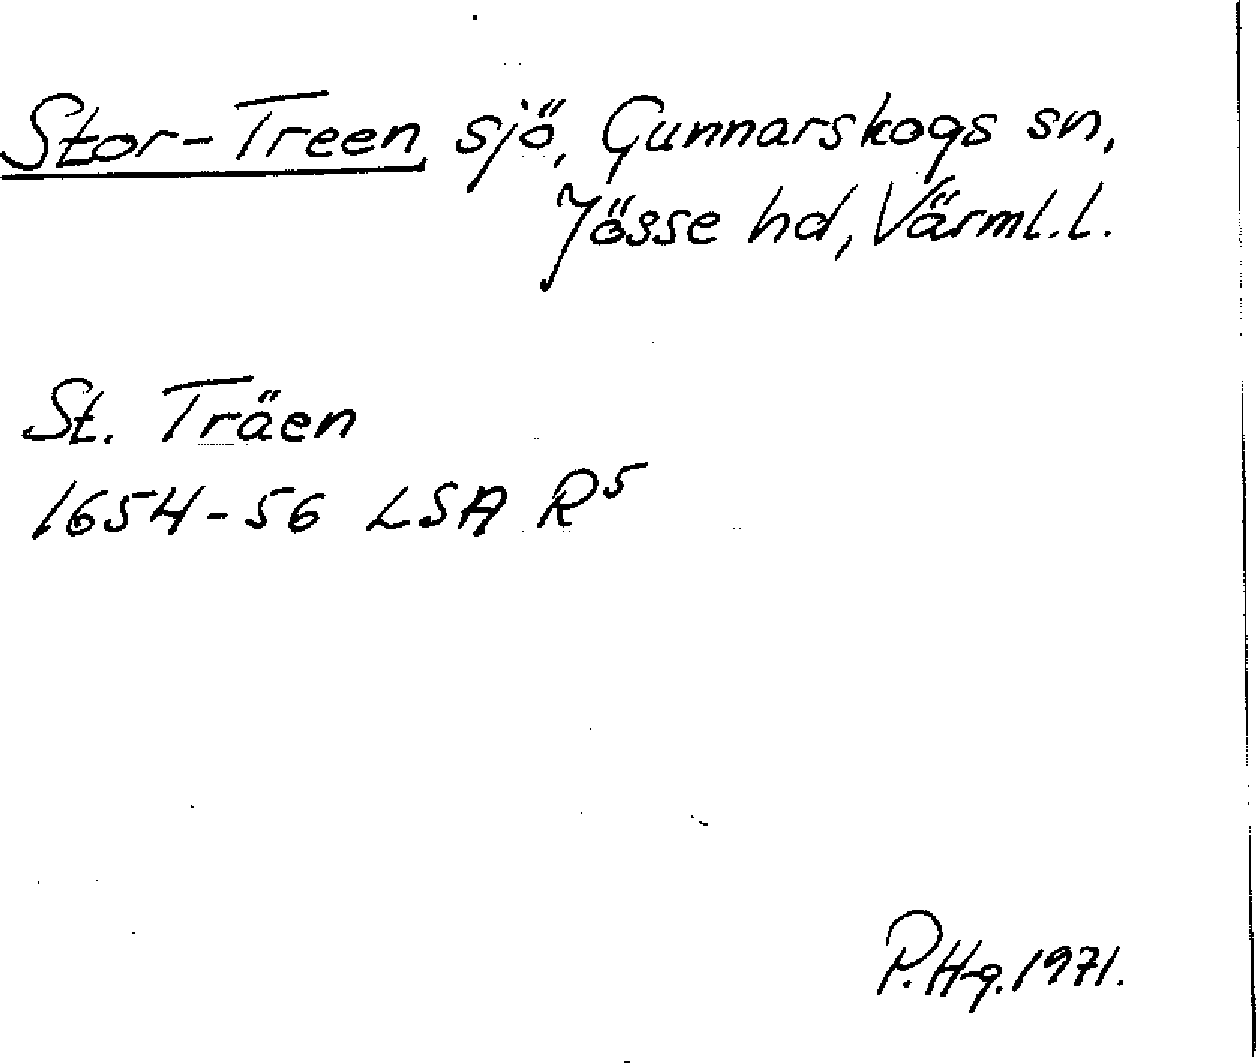 Stor-Treen, sjö, Gunnarskogs sn,
Jösse hd, Värml.l.
St. Träen
1654-56 LSA R5
P.H-g.1971.